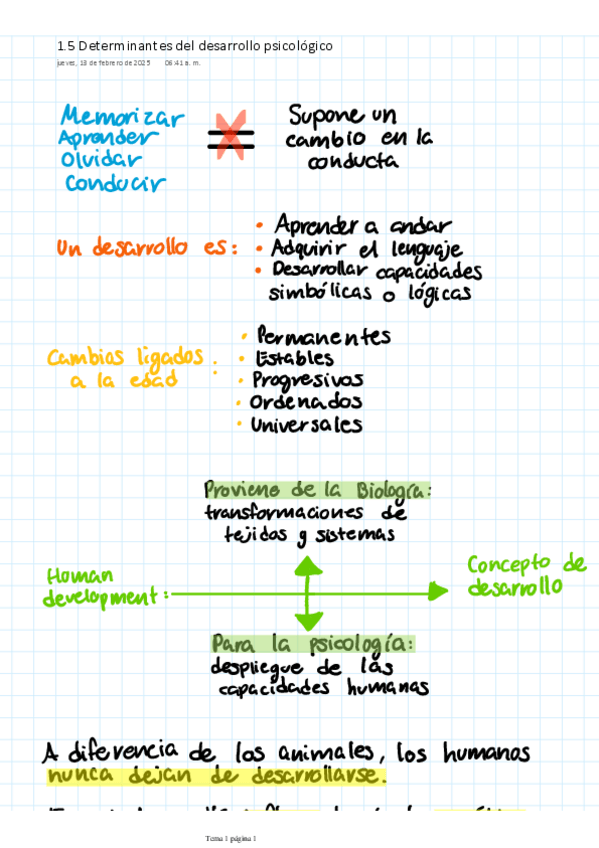 1.5 Determinantes del desarrollo psicológico
jueves, 13 de febrero de 2025 06:41 a. m.
Memorizar
Aprender
Olvidar
Conducir
= X
Supone un
cambio en la
conducta
Un desarrollo es:
• Aprender a andar
• Adquirir el lenguaje
• Desarrollar capacidades
simbólicas o lógicas
Cambios ligados :
a la edad
• Permanentes
• Estables
• Progresivos
• Ordenados
• Universales
Proviene de la Biología:
transformaciones de
tejidos y sistemas
Human
development:
Concepto de
desarrollo
Para la psicología:
despliegue de las
capacidades humanas
A diferencia de los animales, los humanos
nunca dejan de desarrollarse.
Tema 1 página 1